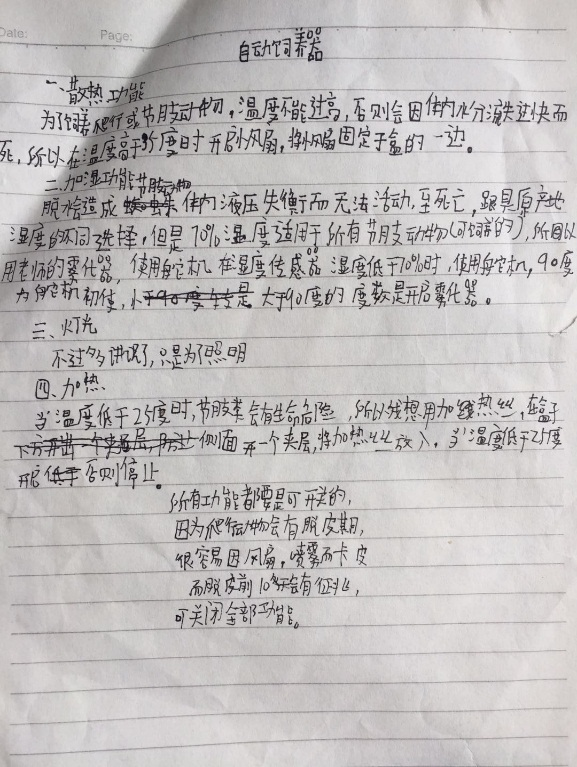 Date:
Page:
自动饲养器
一、散热功能
为了饲养爬行或节肢动物，温度不能过高，否则会因体内水分流失过快而
死，所以在温度高于35度时开启小风扇，将小风扇固定于盒的一边。
二、加湿功能节肢动物
脱水会造成体内液压失衡而无法活动，至死亡，跟具原产地
湿度的不同选择，但是70%湿度适用于所有节肢动物(可饲养的)，所因以
用老师的雾化器，使用舵机在湿度传感器湿度低于70%时，使用舵机，90度
为舵机初使，小于90度角是大于90度的度数是开启雾化器。
三、灯光
不过多讲说了，只是为了照明
四、加热
当温度低于25度时，节肢类会有生命危险，所以我想用加热丝，在盒子
下方开出一个夹层，侧面开一个夹层，将加热丝放入，当温度低于25度
开启低于否则停止。
所有功能都要是可开关的，
因为爬行动物会有脱皮期，
很容易因风扇，喷雾而卡皮
而脱皮前10天会有征兆，
可关闭全部功能。